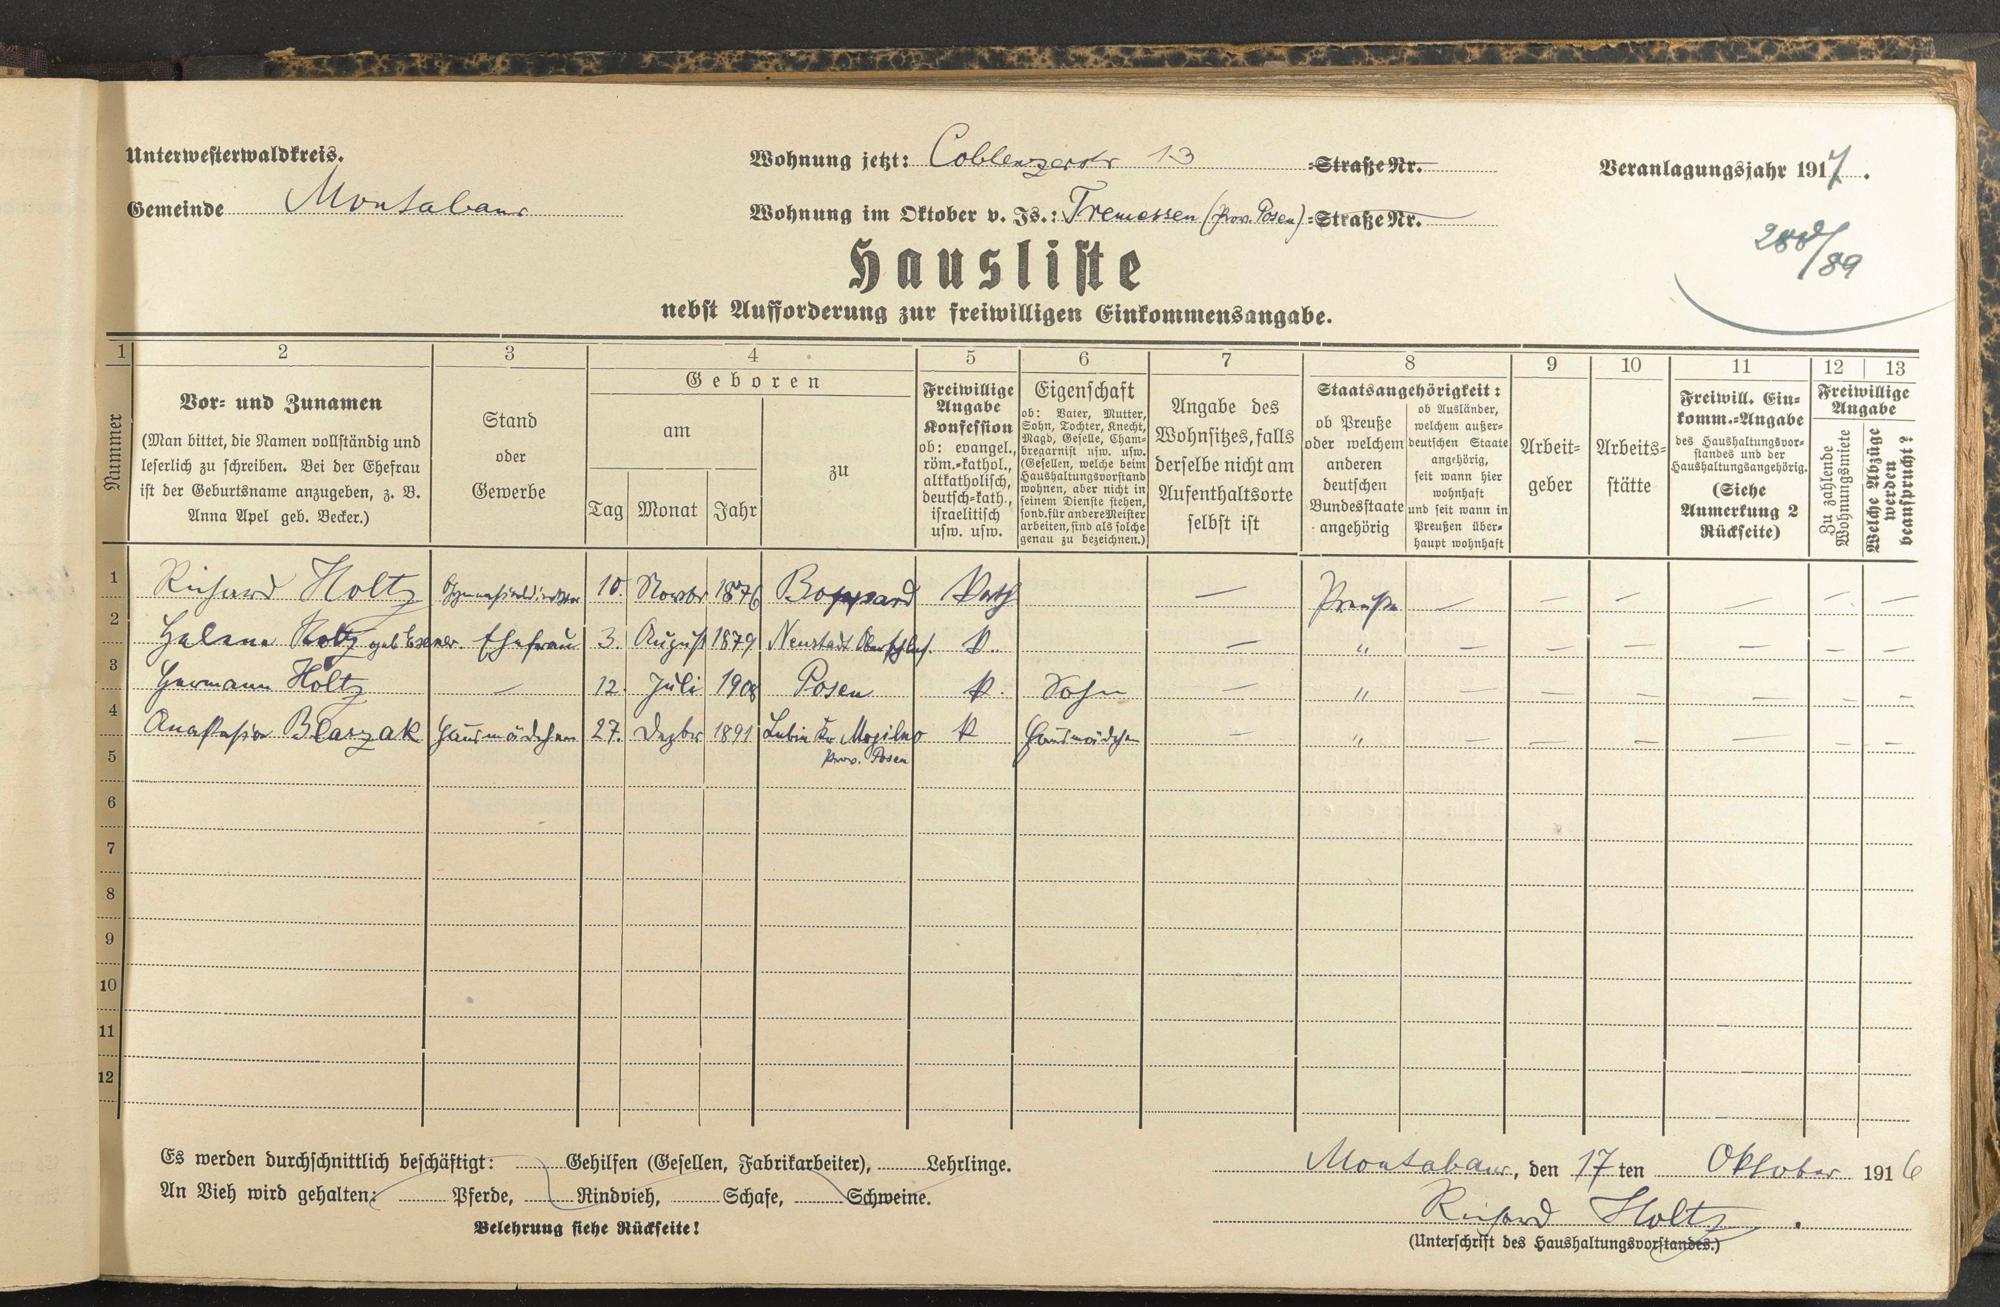 Unterwesterwaldkreis.
Wohnung jetzt: Coblenzerstr 13 -Straße Nr.
Veranlagungsjahr 1917.
Gemeinde Montabaur
Wohnung im Oktober v. Js.: Tremessen (Prov. Posen) -Straße Nr.
288/89
Hausliste
nebst Aufforderung zur freiwilligen Einkommensangabe.
1 2 3 4 5 6 7 8 9 10 11 12 13
Nummer
Vor- und Zunamen
(Man bittet, die Namen vollständig und
leserlich zu schreiben. Bei der Ehefrau
ist der Geburtsname anzugeben, z. B.
Anna Apel geb. Becker.)
Stand
oder
Gewerbe
Geboren
am
Tag Monat Jahr
zu
Freiwillige
Angabe
Konfession
ob: evangel.,
röm.-kathol.,
altkatholisch,
deutsch-kath.,
israelitisch
usw. usw.
Eigenschaft
ob: Vater, Mutter,
Sohn, Tochter, Knecht,
Magd, Geselle, Cham-
bregarnist usw. usw.
(Gesellen, welche beim
Haushaltungsvorstand
wohnen, aber nicht in
seinem Dienste stehen,
sond. für andere Meister
arbeiten, sind als solche
genau zu bezeichnen.)
Angabe des
Wohnsitzes, falls
derselbe nicht am
Aufenthaltsorte
selbst ist
Staatsangehörigkeit:
ob Preuße
oder welchem
anderen
deutschen
Bundesstaate
angehörig
ob Ausländer,
welchem außer-
deutschen Staate
angehörig,
seit wann hier
wohnhaft
und seit wann in
Preußen über-
haupt wohnhaft
Arbeit-
geber
Arbeits-
stätte
Freiwill. Ein-
komm.-Angabe
des Haushaltungsvor-
standes und der
Haushaltungsangehörig.
(Siehe
Anmerkung 2
Rückseite)
Freiwillige
Angabe
Zu zahlende
Wohnungsmiete
Welche Abzüge
werden
beansprucht?
1 Richard Holtz Gymnasialdirektor 10. Novbr 1876 Boppard Kath — Preuße — — — — — —
2 Helene Holtz geb. Ehefrau 3. August 1879 Neustadt Oberschles. K. — " — — — — — —
3 Hermann Holtz — 12. Juli 1908 Posen K. Sohn — " — — — — — —
4 Anastasia Blaszak Hausmädchen 27. Dezbr 1891 Lubin Kr. Mogilno K Hausmädchen — " — — — — — —
Prov. Posen
5
6
7
8
9
10
11
12
Es werden durchschnittlich beschäftigt: Gehilfen (Gesellen, Fabrikarbeiter), Lehrlinge.
An Vieh wird gehalten: Pferde, Rindvieh, Schafe, Schweine.
Belehrung siehe Rückseite!
Montabaur, den 17 ten Oktober 1916
Richard Holtz.
(Unterschrift des Haushaltungsvorstandes.)